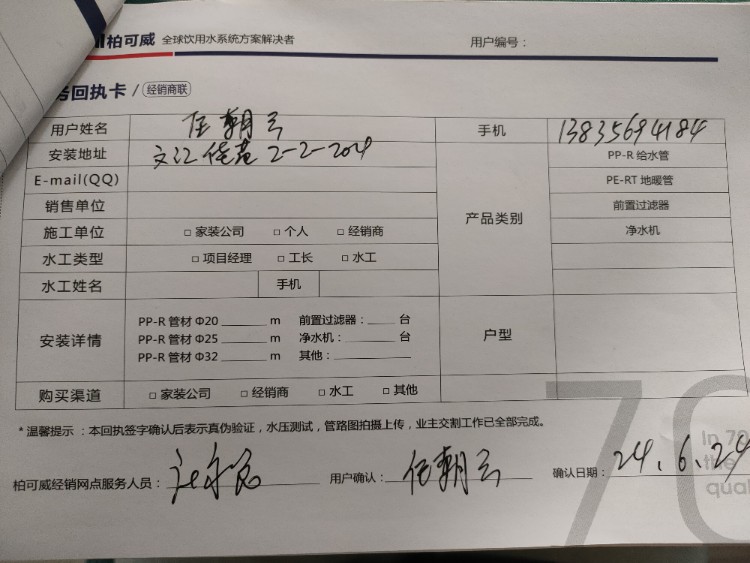 柏可威 全球饮用水系统方案解决者 用户编号：
务回执卡 / 经销商联
用户姓名 任朝云 手机 13835694184
安装地址 文江佳苑 2-2-204 产品类别 PP-R 给水管
E-mail(QQ) PE-RT 地暖管
销售单位 前置过滤器
施工单位 □ 家装公司 □ 个人 □ 经销商 净水机
水工类型 □ 项目经理 □ 工长 □ 水工
水工姓名 手机
安装详情 户型
PP-R 管材 Φ20 ______ m 前置过滤器：____ 台
PP-R 管材 Φ25 ______ m 净水机：______ 台
PP-R 管材 Φ32 ______ m 其他：________
购买渠道 □ 家装公司 □ 经销商 □ 水工 □ 其他
* 温馨提示：本回执签字确认后表示真伪验证，水压测试，管路图拍摄上传，业主交割工作已全部完成。
柏可威经销网点服务人员： 用户确认：任朝云 确认日期：24.6.24
70
In 70
the
qual